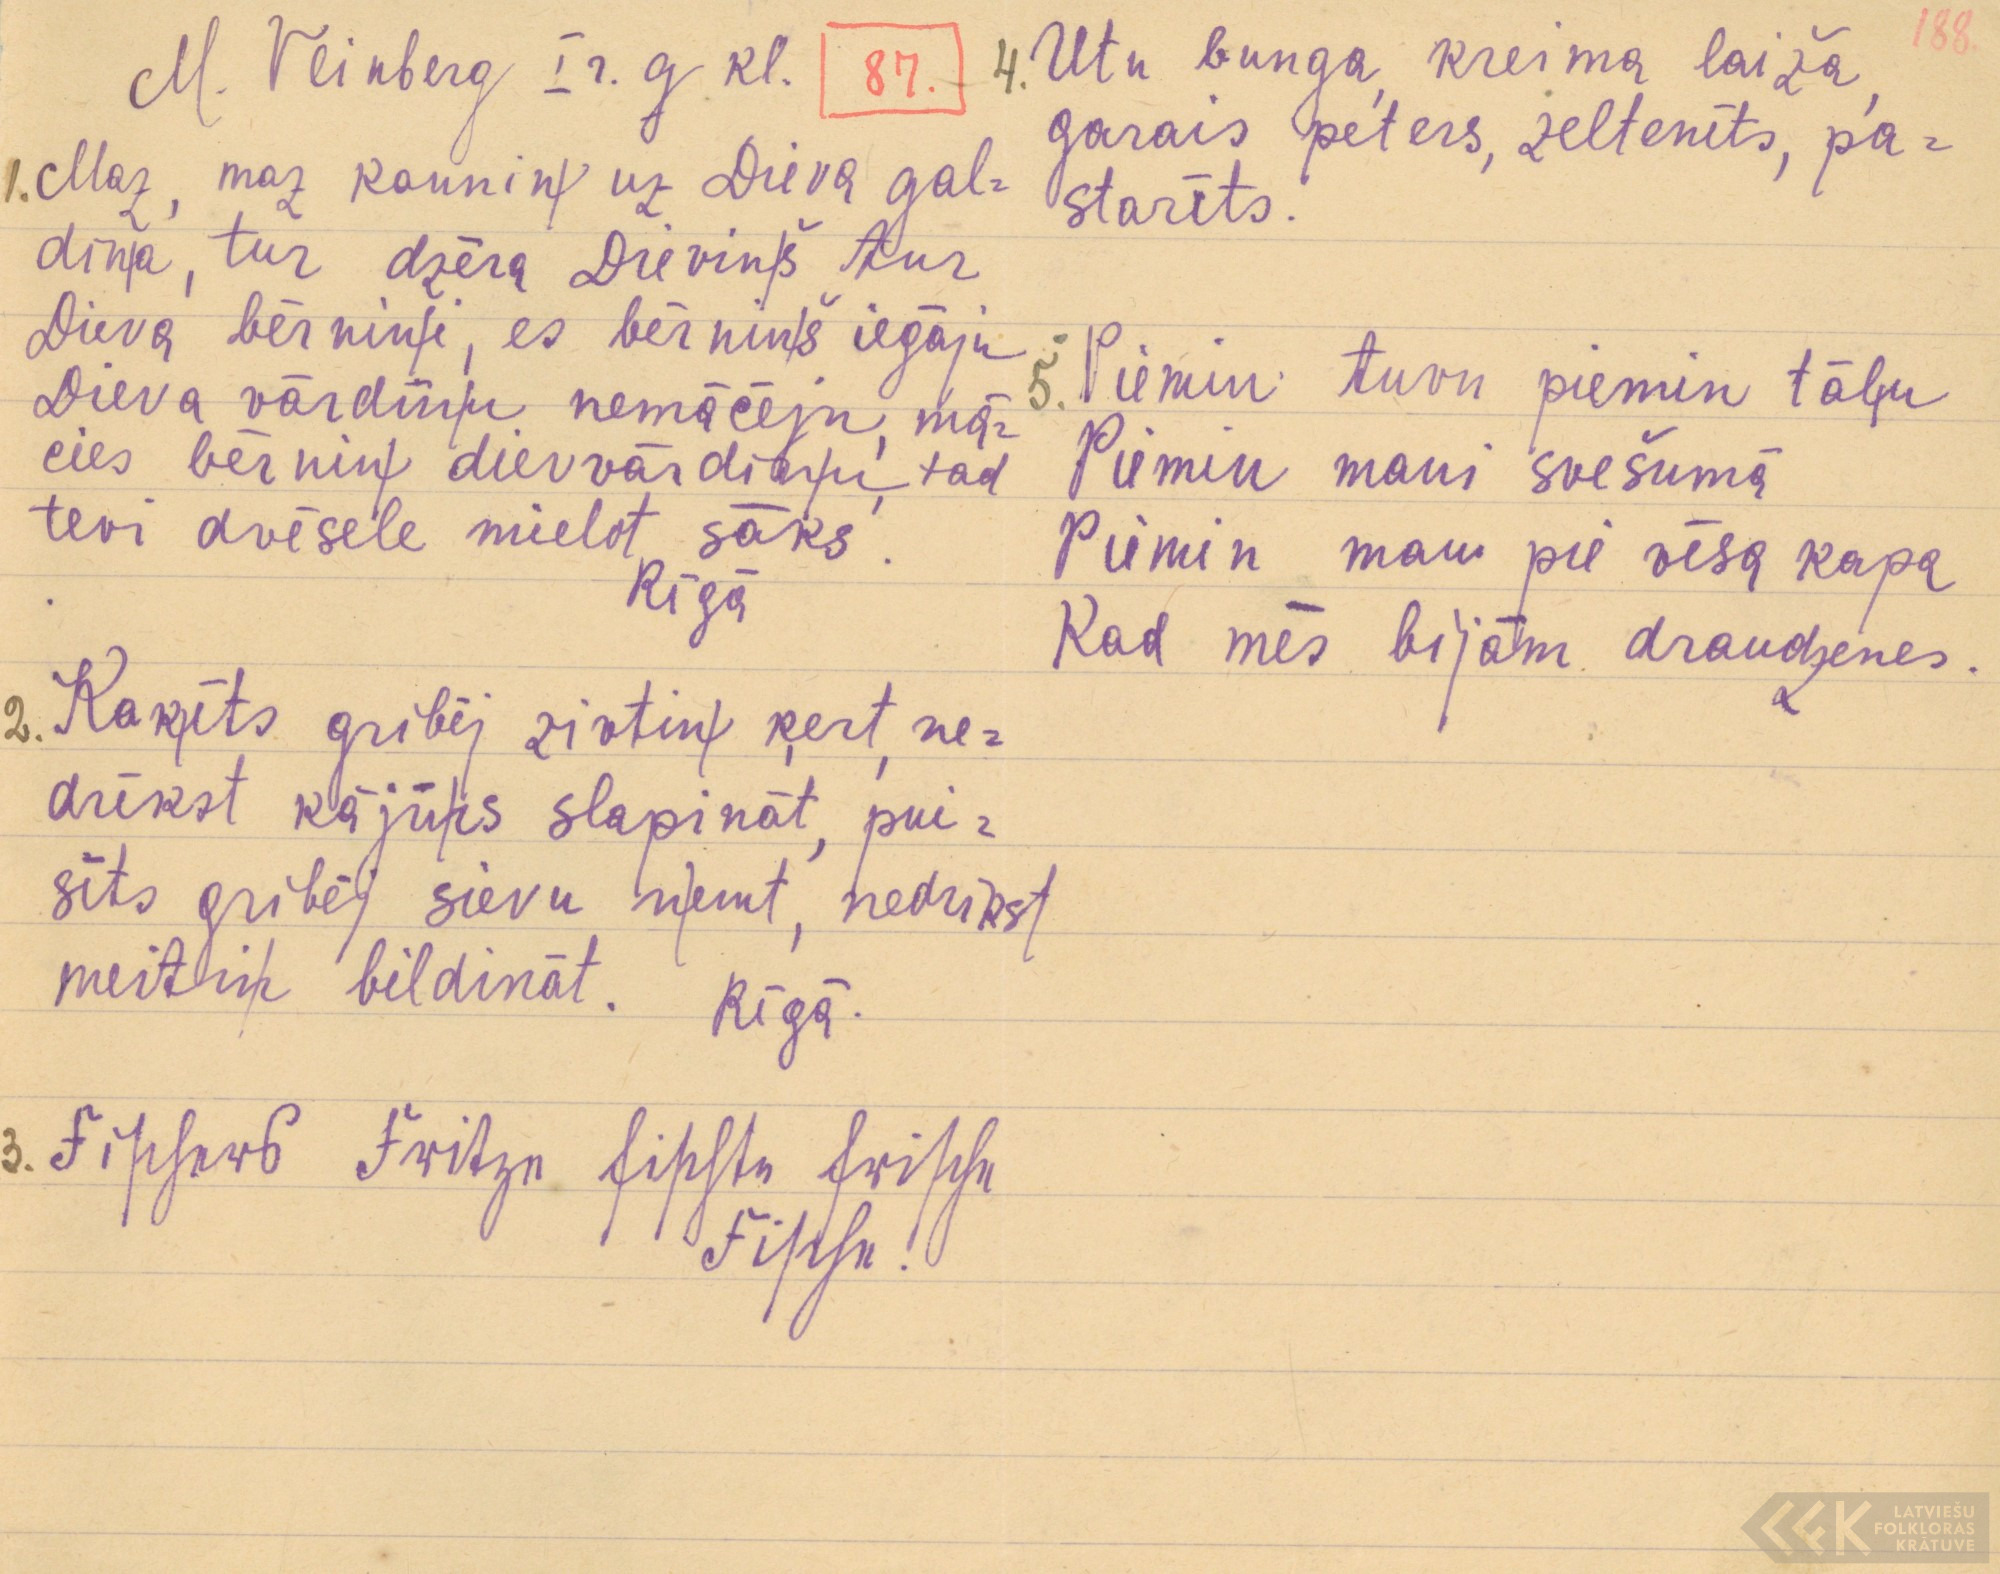 M. Veinberg I r. g kl. 87.
1. Maz, maz kauniņ uz Dieva gal=
diņa, tur dzēra Dieviņš tur
Dieva bērniņi, es bērniņš iegāju
Dieva vārdiņu nemācēju, mā=
cies bērniņ dievvārdiņu, tad
tevi dvēsele mielot sāks.
Rīgā
2. Kaķīts gribēj zivtiņ ķert, ne=
drīkst kājiņs slapināt, pui=
sīts gribēj sievu ņemt, nedrīkst
meitiņ bildināt. Rīgā.
3. Fischers Fritze fischte frische
Fische!
188.
4. Utu bunga, kreima laiža,
garais pēters, zeltenīts, pa=
starīts.
5. Piemin tuvu piemin tāļu
Piemin mani svešumā
Piemin mani pie vēsa kapa
Kad mēs bijām draudzenes.
LATVIEŠU
FOLKLORAS
KRĀTUVE